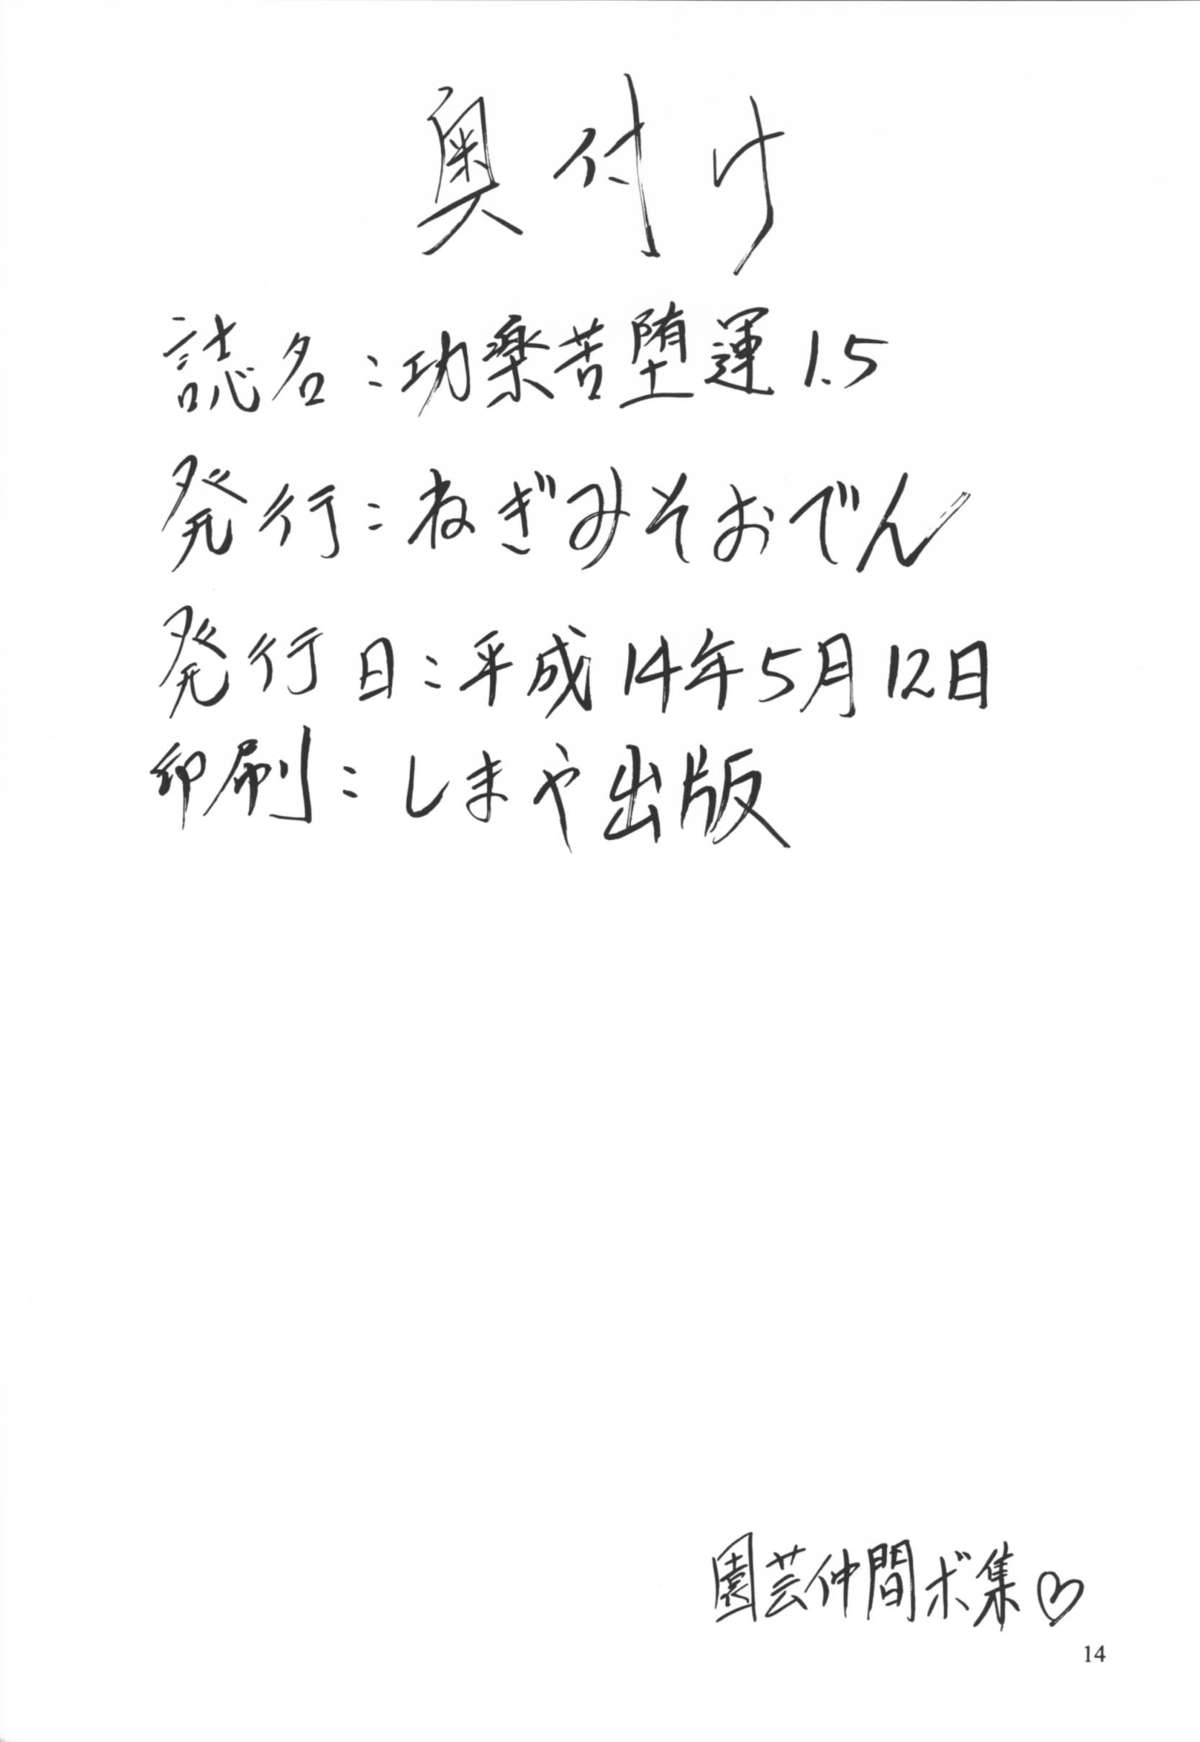 奥付け
誌名：功楽苦堕運1.5
発行：ねぎみそおでん
発行日：平成14年5月12日
印刷：しまや出版
園芸仲間ボ集♡
14